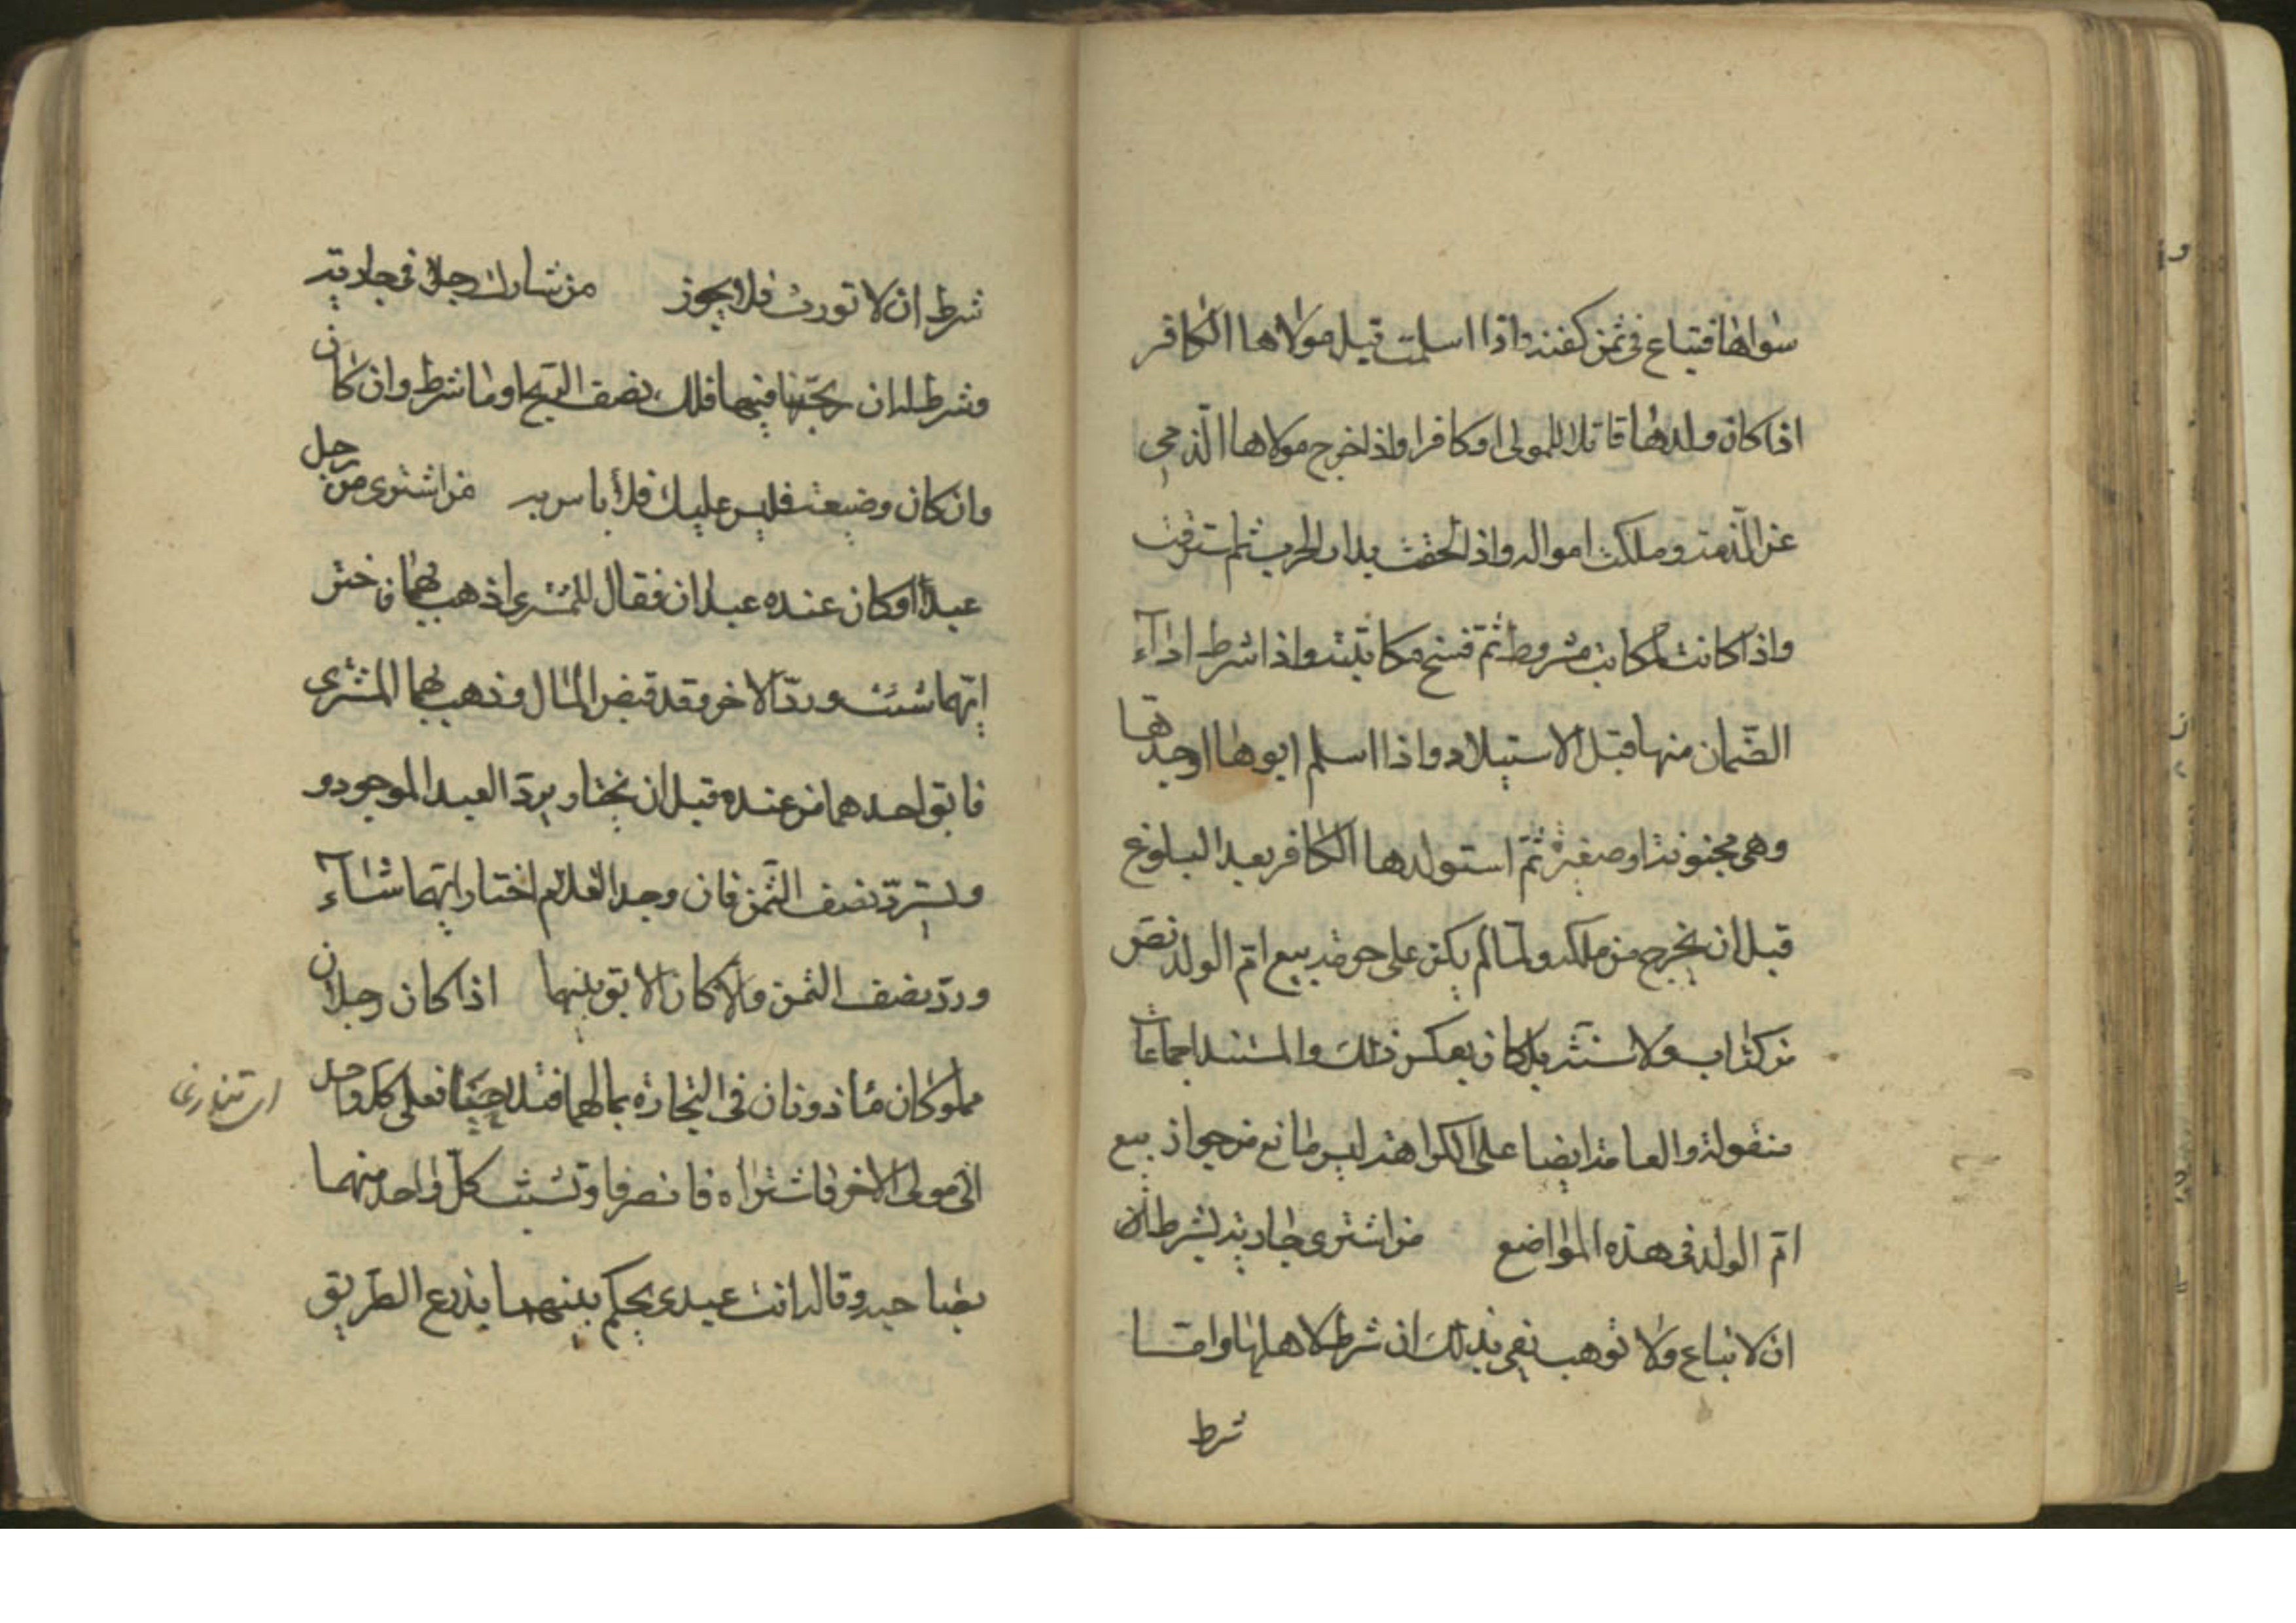 سواها فتباع فی ثمن کفنه واذا اسلمت قبل مولاها الکافر
اذا کان ولدها قاتلا للمولی او کافرا واذا خرج مولاها الذمی
عن الذمة وملکت امواله واذا لحقت بدار الحرب ثم استرقت
واذا کانت مکاتبة مشروطة ثم فسخ مکاتبته واذا شرط اداء
الضمان منها قبل الاستیلاد واذا اسلم ابوها او جدها
وهی مجنونة او صغیرة ثم استولدها الکافر بعد البلوغ
قبل ان یخرج من ملکه ولما لم یکن علی حرمة بیع ام الولد نص
من کتاب ولا سنة بل کان بعکس ذلک والمستند اجماعات
منقولة والعامة ایضا علی الکراهة لیس مانع من جواز بیع
ام الولد فی هذه المواضع من اشتری جاریة بشرط ان
ان لا تباع ولا توهب یفی بذلک ان شرط لاهلها واما
شرط
شرط ان لا تورث فلا یجوز من شارک رجلا فی جاریة
وشرط له ان ربحنا فیها فلک نصف الربح او ما شرط وان کان
وان کان وضیعة فلیس علیک فلا باس به من اشتری من رجل
عبدا وکان عنده عبدان فقال للمشتری اذهب بهما فاختر
ایهما شئت ورد الاخر وقد قبض المال وذهب بهما المشتری
فابق احدهما من عنده قبل ان یختار یرد العبد الموجود و
یسترد نصف الثمن فان وجد الغلام اختار ایهما شاء
ورد نصف الثمن والا کان الابق بینهما اذا کان رجلان
مملوکان مأذونان فی التجارة بمالهما فعلی کل واحد
الی مولی الاخر فاشتراه فانصرفا وتشبث کل واحد منهما
بصاحبه وقال له انت عبدی یحکم بینهما بذرع الطریق